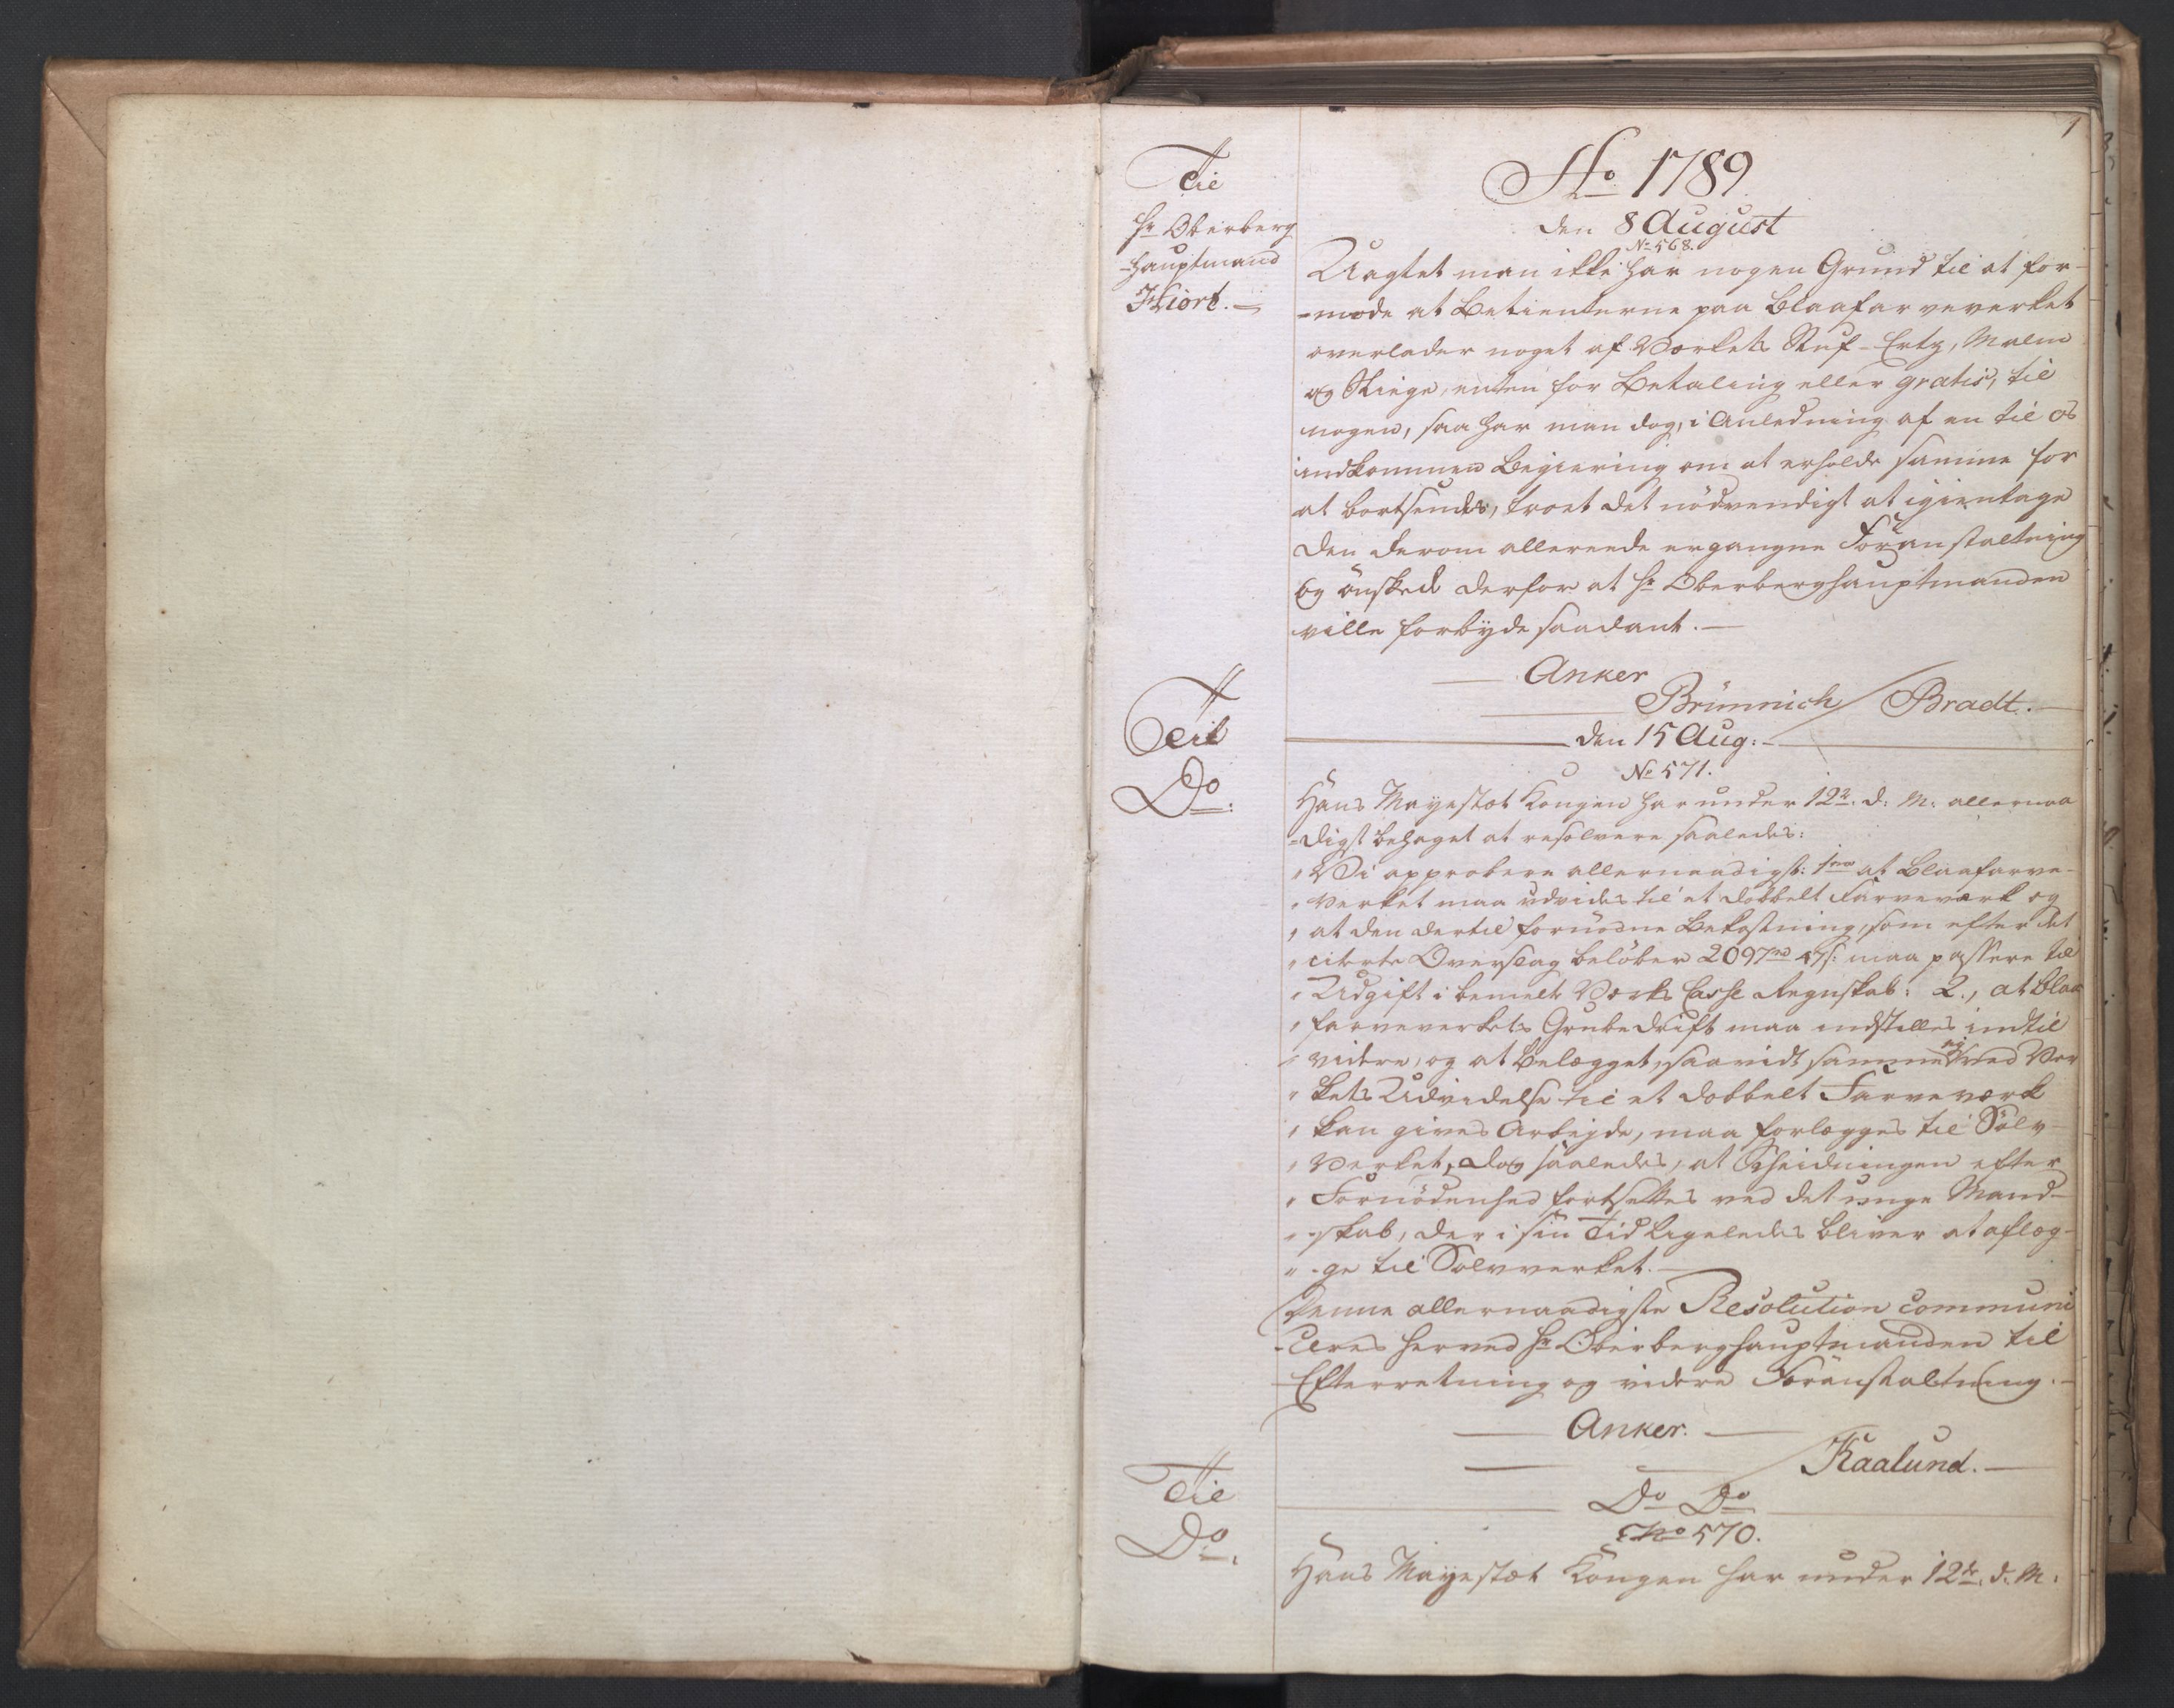 1
Ao 1789
den 8 August
No 568.
Til
Hr Oberberg
-hauptmand
Hiort.-
Uagtet man ikke har nogen Grund til at for-
-mode at Betienterne paa Blaafarveverket
overlader noget af Værkets Stuf-Ertz, Malm
og Sliege, enten for Betaling eller gratis, til
nogen, saa har man dog, i Anledning af en til os
indkommen Begiering om at erholde samme for
at bortsendes, troet det nödvendigt at igientage
den derom allerede ergangne Foranstaltning
og önsked derfor at Hr Oberberghauptmanden
ville forbyde saadant.-
Anker
Brünnich / Bradt.-
Til
Do
den 15 Aug:-
No 571.
Hans Mayestæt Kongen har under 12te. d: M: allernaa
-digst behaget at resolvere saaledes:
" Vi approbere allernaadigst: 1mo at Blaafarve-
" verket maa udvides til et dobbelt Farveværk og
" at den dertil fornödne Bekostning, som efter det
" citerte Overslag belöber 2097rd 47s: maa passere til
" Udgift i bemelte Værks Casse Regnskab: 2., at Blaa
" farveverkets Grubedrift maa indstilles indtil
" videre, og at Belægget, saavidt samme ej ved Vær
" kets Udvidelse til et dobbelt Farveværk
" kan gives Arbejde, maa forlægges til Sölv-
" Verket, dog saaledes, at Scheidningen efter
" Fornödenhed fortsettes ved det unge Mand-
" -skab, der i sin Tid ligeledes bliver at aflæg-
" -ge til Sölvverket.-
Denne allernaadigste Resolution communi
-ceres herved Hr Oberberghauptmanden til
Efterretning og videre Foranstaltning.-
Anker.
Kaalund.-
Til
Do.
Do Do
No 570.
Hans Mayestæt Kongen har under 12te. d: M: